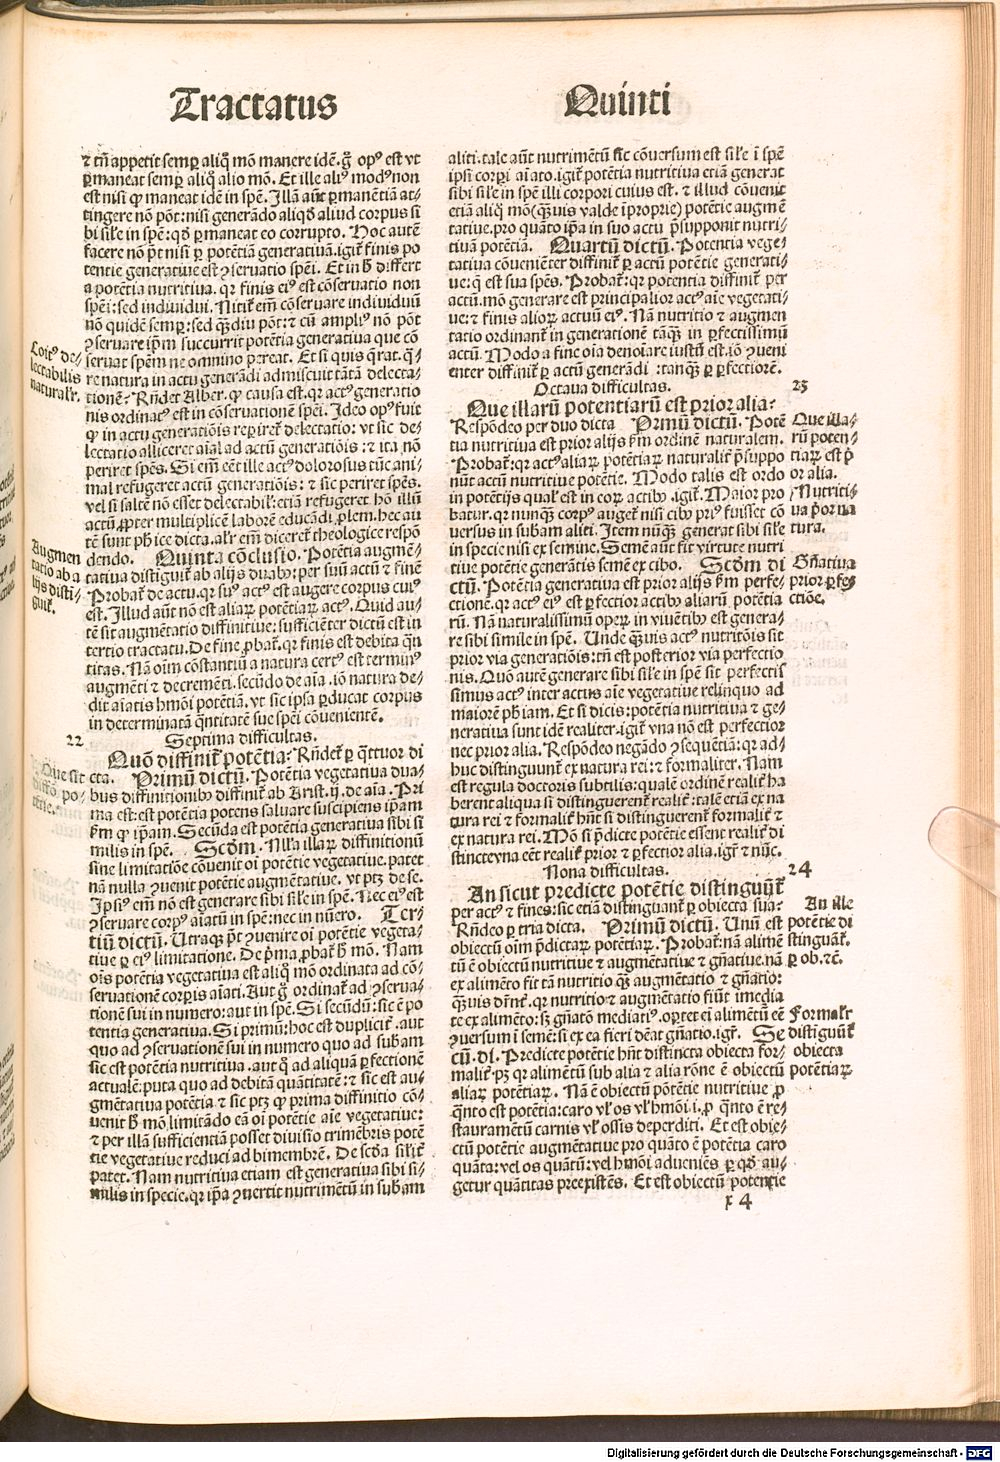 Tractatus Quinti
⁊ tñ appetit semꝑ aliq̃ mõ manere idẽ. g̊ opꝰ est vt
ꝑmaneat semꝑ aliq̃ alio mõ. Et ille aliꝰ modꝰ non
est nisi ꝙ maneat idẽ in spẽ. Illã aũt ꝑmanẽtiã at⸗
tingere nõ põt: nisi generãdo aliqđ aliud corpus si
bi sil̃e in spẽ: qđ ꝑmaneat eo corrupto. Hoc autẽ
facere nõ p̃t nisi ꝑ potẽtiã generatiuã. igit̃ finis po
tentie generatiue est ɔseruatio spẽi. Et in h̃ differt
a potẽtia nutritiua. qꝛ finis eiꝰ est cõseruatio non
spẽi: sed indiuidui. Nitit̃ em̃ cõseruare indiuiduũ
nõ quidẽ semꝑ: sed q̃diu põt: ⁊ cũ ampliꝰ nõ põt
ɔseruare ip̃m succurrit potẽtia generatiua que cõ
seruat spẽm ne omnino pereat. Et si quis q̃rat. q̃⸗
re natura in actu generãdi admiscuit tãtã delecta⸗
tionẽ? Rñdet Alber. ꝙ causa est. qꝛ actꝰ generatio
nis ordinatꝰ est in cõseruationẽ spẽi. Ideo opꝰ fuit
ꝙ in actu generatiõis reꝑiret̃ delectatio: vt sic de⸗
lectatio alliceret aĩal ad actũ generatiõis: ⁊ ita nõ
periret spẽs. Si em̃ eẽt ille actꝰ dolorosus tũc ani⸗
mal refugeret actũ generatiõis: ⁊ sic periret spẽs.
vel si saltẽ nõ esset delectabil̃: etiã refugeret hõ illũ
actũ ꝓpter multiplicẽ laborẽ educãdi ꝓlem. hec au
tẽ sunt ph̃ice dicta. al̃r em̃ diceret̃ theologice respõ
dendo. Quinta cõclusio. Potẽtia augmẽ⸗
tatiua distiguit̃ ab alijs duabꝰ: per suũ actũ ⁊ finẽ
Probat̃ de actu. qꝛ suꝰ actꝰ est augere corpus cuiꝰ
est. Illud aũt nõ est aliaꝝ potẽtiaꝝ actꝰ. Quid au⸗
tẽ sit augmẽtatio diffinitiue: sufficiẽter dictũ est in
tertio tractatu. De fine ꝓbat̃. qꝛ finis est debita q̃n
titas. Nã oĩm cõstantiũ a natura certꝰ est terminꝰ
augmẽti ⁊ decremẽti. secũdo de aĩa. iõ natura de⸗
dit aĩatis hmõi potẽtiã. vt sic ipsa ꝑducat corpus
in determinatã q̃ntitatẽ sue spẽi cõuenientẽ.
Septima difficultas.
Quõ diffinit̃ potẽtia? Rñdet̃ ꝑ q̃ttuor di
cta. Primũ dictũ. Potẽtia vegetatiua dua⸗
bus diffinitionibꝰ diffinit̃ ab Arist. ij. de aĩa. Pri
ma est: est potẽtia potens saluare suscipiens ip̃am
ẜm ꝙ ip̃am. Secũda est potẽtia generatiua sibi si
milis in spẽ. Scđm. Nlla illaꝝ diffinitionũ
sine limitatiõe cõuenit oĩ potẽtie vegetatiue. patet
nã nulla ɔuenit potẽtie augmẽtatiue. vt ptꝫ de se.
Ipsiꝰ em̃ nõ est generare sibi sil̃e in spẽ. Nec eiꝰ est
ɔseruare corpꝰ aĩatũ in spẽ: nec in nũero. Ter⸗
tiũ dictũ. Utraqꝫ p̃t ɔuenire oĩ potẽtie vegeta⸗
tiue ꝑ eiꝰ limitatione. De p̃ma ꝓbat̃ h̃ mõ. Nam
oĩs potẽtia vegetatiua est aliq̃ mõ ordinata ad cõ⸗
seruationẽ corꝑis aĩati. Aut g̊ ordinat̃ ad ɔserua⸗
tionẽ sui in numero: aut in spẽ. Si secũdũ: sic ẽ po
tentia generatiua. Si primũ: hoc est duplicit̃. aut
quo ad ɔseruationẽ sui in numero quo ad sub̃am
sic est potẽtia nutritiua. aut q̊ ad aliquã ꝑfectionẽ
actualẽ: puta quo ad debitã quãtitatẽ: ⁊ sic est au⸗
gmẽtatiua potẽtia ⁊ sic ptꝫ ꝙ prima diffinitio cõ⸗
uenit h̃ mõ limitãdo eã oĩ potẽtie aĩe vegetatiue:
⁊ per illã sufficientiã posset diuisio trimẽbris potẽ
tie vegetatiue reduci ad bimembrẽ. De scđa sil̃it̃
patet. Nam nutritiua etiam est generatiua sibi si⸗
milis in specie. qꝛ ip̃a ɔuertit nutrimẽtũ in sub̃am
Coitꝰ de⸗
lectabilis
naturalr̃.
Augmen
tatio ab a
lijs disti⸗
guit̃.
22
Que sit
diffõ. po⸗
tẽtie.
aliti. tale aũt nutrimẽtũ sic cõuersum est sil̃e ĩ spẽ
ipsi corꝑi aĩato. igit̃ potẽtia nutritiua etiã generat
sibi sil̃e in spẽ illi corpori cuius est. ⁊ illud cõuenit
etiã aliq̃ mõ (q̃uis valde ĩproprie) potẽtie augmẽ
tatiue. pro quãto ip̃a in suo actu p̃supponit nutri⸗
tiuã potẽtiã. Quartũ dictũ. Potentia vege⸗
tatiua cõueniẽter diffinit̃ ꝑ actũ potẽtie generati⸗
ue: q̃ est sua spẽs. Probat̃: qꝛ potentia diffinit̃ per
actũ. mõ generare est principalior actꝰ aĩe vegetati⸗
ue: ⁊ finis alioꝝ actuũ eiꝰ. Nã nutritio ⁊ augmen
tatio ordinant̃ in generationẽ tãqꝫ in ꝑfectissimũ
actũ. Modo a fine oĩa denoĩare iustũ est. iõ ɔueni
enter diffinit̃ ꝑ actũ generãdi: tanqꝫ ꝑ ꝑfectiorẽ.
Octaua difficultas.
Que illarũ potentiarũ est prior alia?
Respõdeo per duo dicta Primũ dictũ. Potẽ
tia nutritiua est prior alijs ẜm ordinẽ naturalem.
Probat̃: qꝛ actꝰ aliaꝝ potẽtiaꝝ naturalit̃ p̃suppo
nũt actũ nutritiue potẽtie. Modo talis est ordo
in potẽtijs qual̃ est in eoꝝ actibꝰ. igit̃. Maior pro
batur. qꝛ nunqꝫ corpꝰ auget̃ nisi cibꝰ priꝰ fuisset cõ
uersus in sub̃am aliti. Item nũq̃ generat sibi sil̃e
in specie nisi ex semine. Semẽ aũt fit virtute nutri
tiue potẽtie generãtis semẽ ex cibo. Scđm di
ctũ. Potẽtia generatiua est prior alijs ẜm perfe⸗
ctionẽ. qꝛ actꝰ eiꝰ est ꝑfectior actibꝰ aliarũ potẽtia
rũ. Nã naturalissimũ opeꝝ in viuẽtibꝰ est genera⸗
re sibi simile in spẽ. Unde q̃uis actꝰ nutritõis sit
prior via generatiõis: tñ est posterior via perfectio
nis. Quõ autẽ generare sibi sil̃e in spẽ sit perfectis
simus actꝰ inter actus aĩe vegetatiue relinquo ad
maiorẽ ph̃iam. Et si dicis: potẽtia nutritiua ⁊ ge⸗
neratiua sunt idẽ realiter. igit̃ vna nõ est perfectior
nec prior alia. Respõdeo negãdo ɔsequẽtiã: qꝛ ad⸗
huc distinguunt̃ ex natura rei: ⁊ formaliter. Nam
est regula doctoris subtilis: qualẽ ordinẽ realit̃ ha
berent aliqua si distinguerent̃ realit̃: talẽ etiã ex na
tura rei ⁊ formalit̃ hñt si distinguerent̃ formalit̃ ⁊
ex natura rei. Mõ si p̃dicte potẽtie essent realit̃ di
stincte vna eẽt realit̃ prior ⁊ ꝑfectior alia. igit̃ ⁊ nũc.
Nona difficultas.
An sicut predicte potẽtie distinguũt̃
per actꝰ ⁊ fines: sic etiã distinguant̃ ꝑ obiecta sua?
Rñdeo ꝑ tria dicta. Primũ dictũ. Unũ est
obiectũ oĩm p̃dictaꝝ potẽtiaꝝ. Probat̃: nã alimẽ
tũ ẽ obiectũ nutritiue ⁊ augmẽtatiue ⁊ gñatiue. nã
ex alimẽto fit tã nutritio qꝫ augmẽtatio ⁊ gñatio:
q̃uis dr̃nt̃. qꝛ nutritio ⁊ augmẽtatio fiũt ĩmedia
te ex alimẽto: sꝫ gñatõ mediatiꝰ. oꝑtet ei alimẽtũ eẽ
ɔuersum ĩ semẽ: si ex ea fieri deãt gñatio. igit̃. Se
cũ. di. Predicte potẽtie hñt distincta obiecta for⸗
malit̃. pꝫ qꝛ alimẽtũ sub alia ⁊ alia rõne ẽ obiectũ
aliaꝝ potẽtiaꝝ. Nã ẽ obiectũ põtẽtie nutritiue ꝓ
q̃nto est potẽtia: caro vl̃ os vl̃ hmõi. i. ꝓ q̃nto ẽ re⸗
stauramẽtũ carnis vl̃ ossis deperditi. Et est obie⸗
ctũ potẽtie augmẽtatiue pro quãto ẽ potẽtia caro
quãta: vel os quãtũ: vel hmõi adueniẽs ꝑ qđ au⸗
getur quãtitas preexistẽs. Et est obiectũ potentie
x 4
23
Que illa⸗
rũ poten⸗
tiaꝝ est p̃
or alia.
Nutriti⸗
ua p̃or na
tura.
Gñatiua
prior ꝑfe⸗
ctiõe.
24
An ille
potẽtie di
stinguãt̃.
ꝑ ob. ⁊c.
Formalr̃
distiguũt̃
obiecta
potẽtiaꝝ.
Digitalisierung gefördert durch die Deutsche Forschungsgemeinschaft - DFG